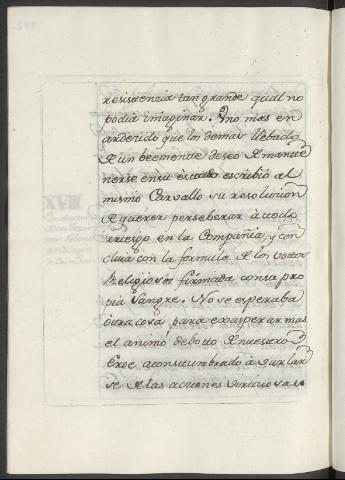 resistenzia tan grande qual no
podia imaginar. Uno mas en
ardecido que los demas llebado
de un beemente deseo de mante
nerse en su estado escribió al
mismo Carvallo su resolucion
de querer perseberar à todo
riesgo en la Compañia, y con
cluia con la formula de los votos
Religiosos firmada con su pro
pia Sangre. No se esperaba
otra cosa para exasperar mas
el animo de boto de nuestro
Eroe acostumbrado à burlar
se de las acciones virtuosas
XVIII